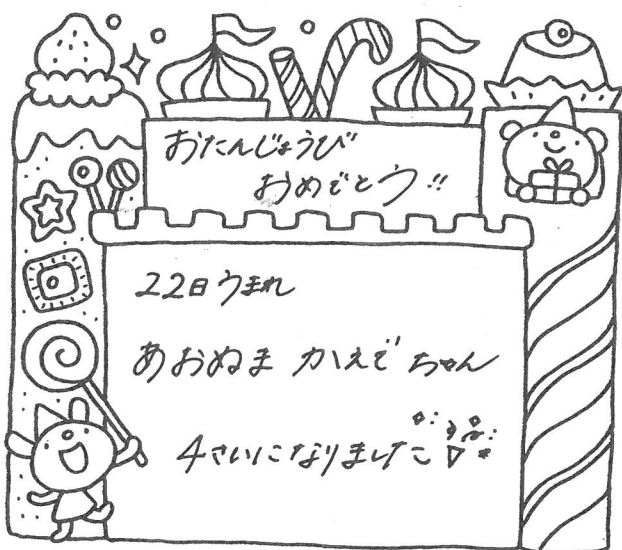 おたんじょうび
おめでとう!!
22日うまれ
あおぬま かえで ちゃん
4さいになりました